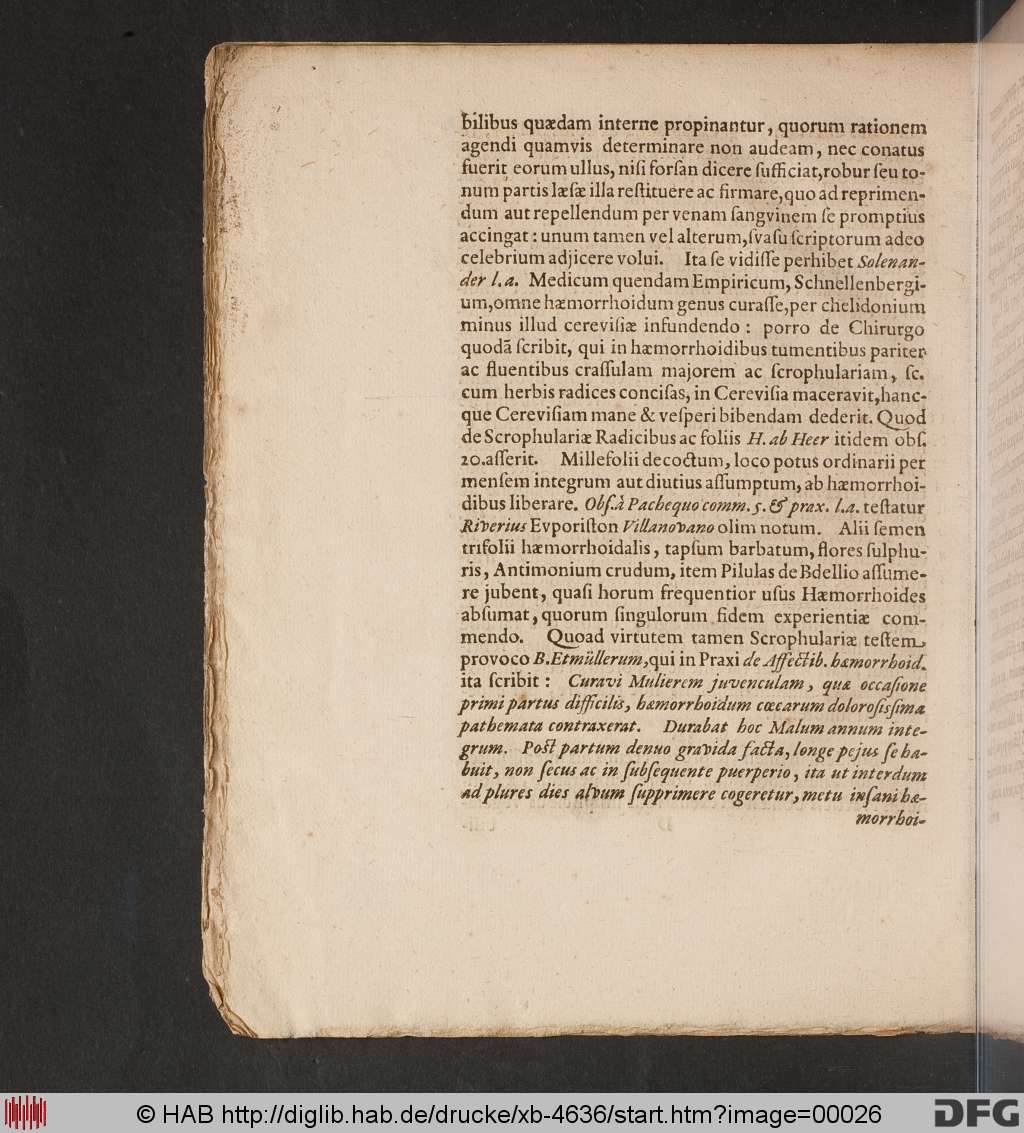 bilibus quædam interne propinantur, quorum rationem
agendi quamvis determinare non audeam, nec conatus
fuerit eorum ullus, niſi forſan dicere ſufficiat, robur ſeu to-
num partis læſæ illa reſtituere ac firmare, quo ad reprimen-
dum aut repellendum per venam ſangvinem ſe promptius
accingat: unum tamen vel alterum, ſvaſu ſcriptorum adeo
celebrium adjicere volui. Ita ſe vidiſſe perhibet Solenan-
der l. a. Medicum quendam Empiricum, Schnellenbergi-
um, omne hæmorrhoidum genus curaſſe, per chelidonium
minus illud cereviſiæ infundendo: porro de Chirurgo
quodã ſcribit, qui in hæmorrhoidibus tumentibus pariter
ac fluentibus craſſulam majorem ac ſcrophulariam, ſc.
cum herbis radices conciſas, in Cereviſia maceravit, hanc-
que Cereviſiam mane & veſperi bibendam dederit. Quod
de Scrophulariæ Radicibus ac foliis H. ab Heer itidem obſ.
20. aſſerit. Millefolii decoctum, loco potus ordinarii per
menſem integrum aut diutius aſſumptum, ab hæmorrhoi-
dibus liberare. Obſ. à Pachequo comm. 5. & prax. l. a. teſtatur
Riverius Evporiſton Villanovano olim notum. Alii ſemen
trifolii hæmorrhoidalis, tapſum barbatum, flores ſulphu-
ris, Antimonium crudum, item Pilulas de Bdellio aſſume-
re jubent, quaſi horum frequentior uſus Hæmorrhoides
abſumat, quorum ſingulorum fidem experientiæ com-
mendo. Quoad virtutem tamen Scrophulariæ teſtem
provoco B. Etmüllerum, qui in Praxi de Affectib. hæmorrhoid.
ita ſcribit: Curavi Mulierem juvenculam, quæ occaſione
primi partus difficilis, hæmorrhoidum cœcarum doloroſisſima
pathemata contraxerat. Durabat hoc Malum annum inte-
grum. Poſt partum denuo gravida facta, longe pejus ſe ha-
buit, non ſecus ac in ſubſequente puerperio, ita ut interdum
ad plures dies alvum ſupprimere cogeretur, metu inſani hæ-
morrhoi-
© HAB http://diglib.hab.de/drucke/xb-4636/start.htm?image=00026
DFG